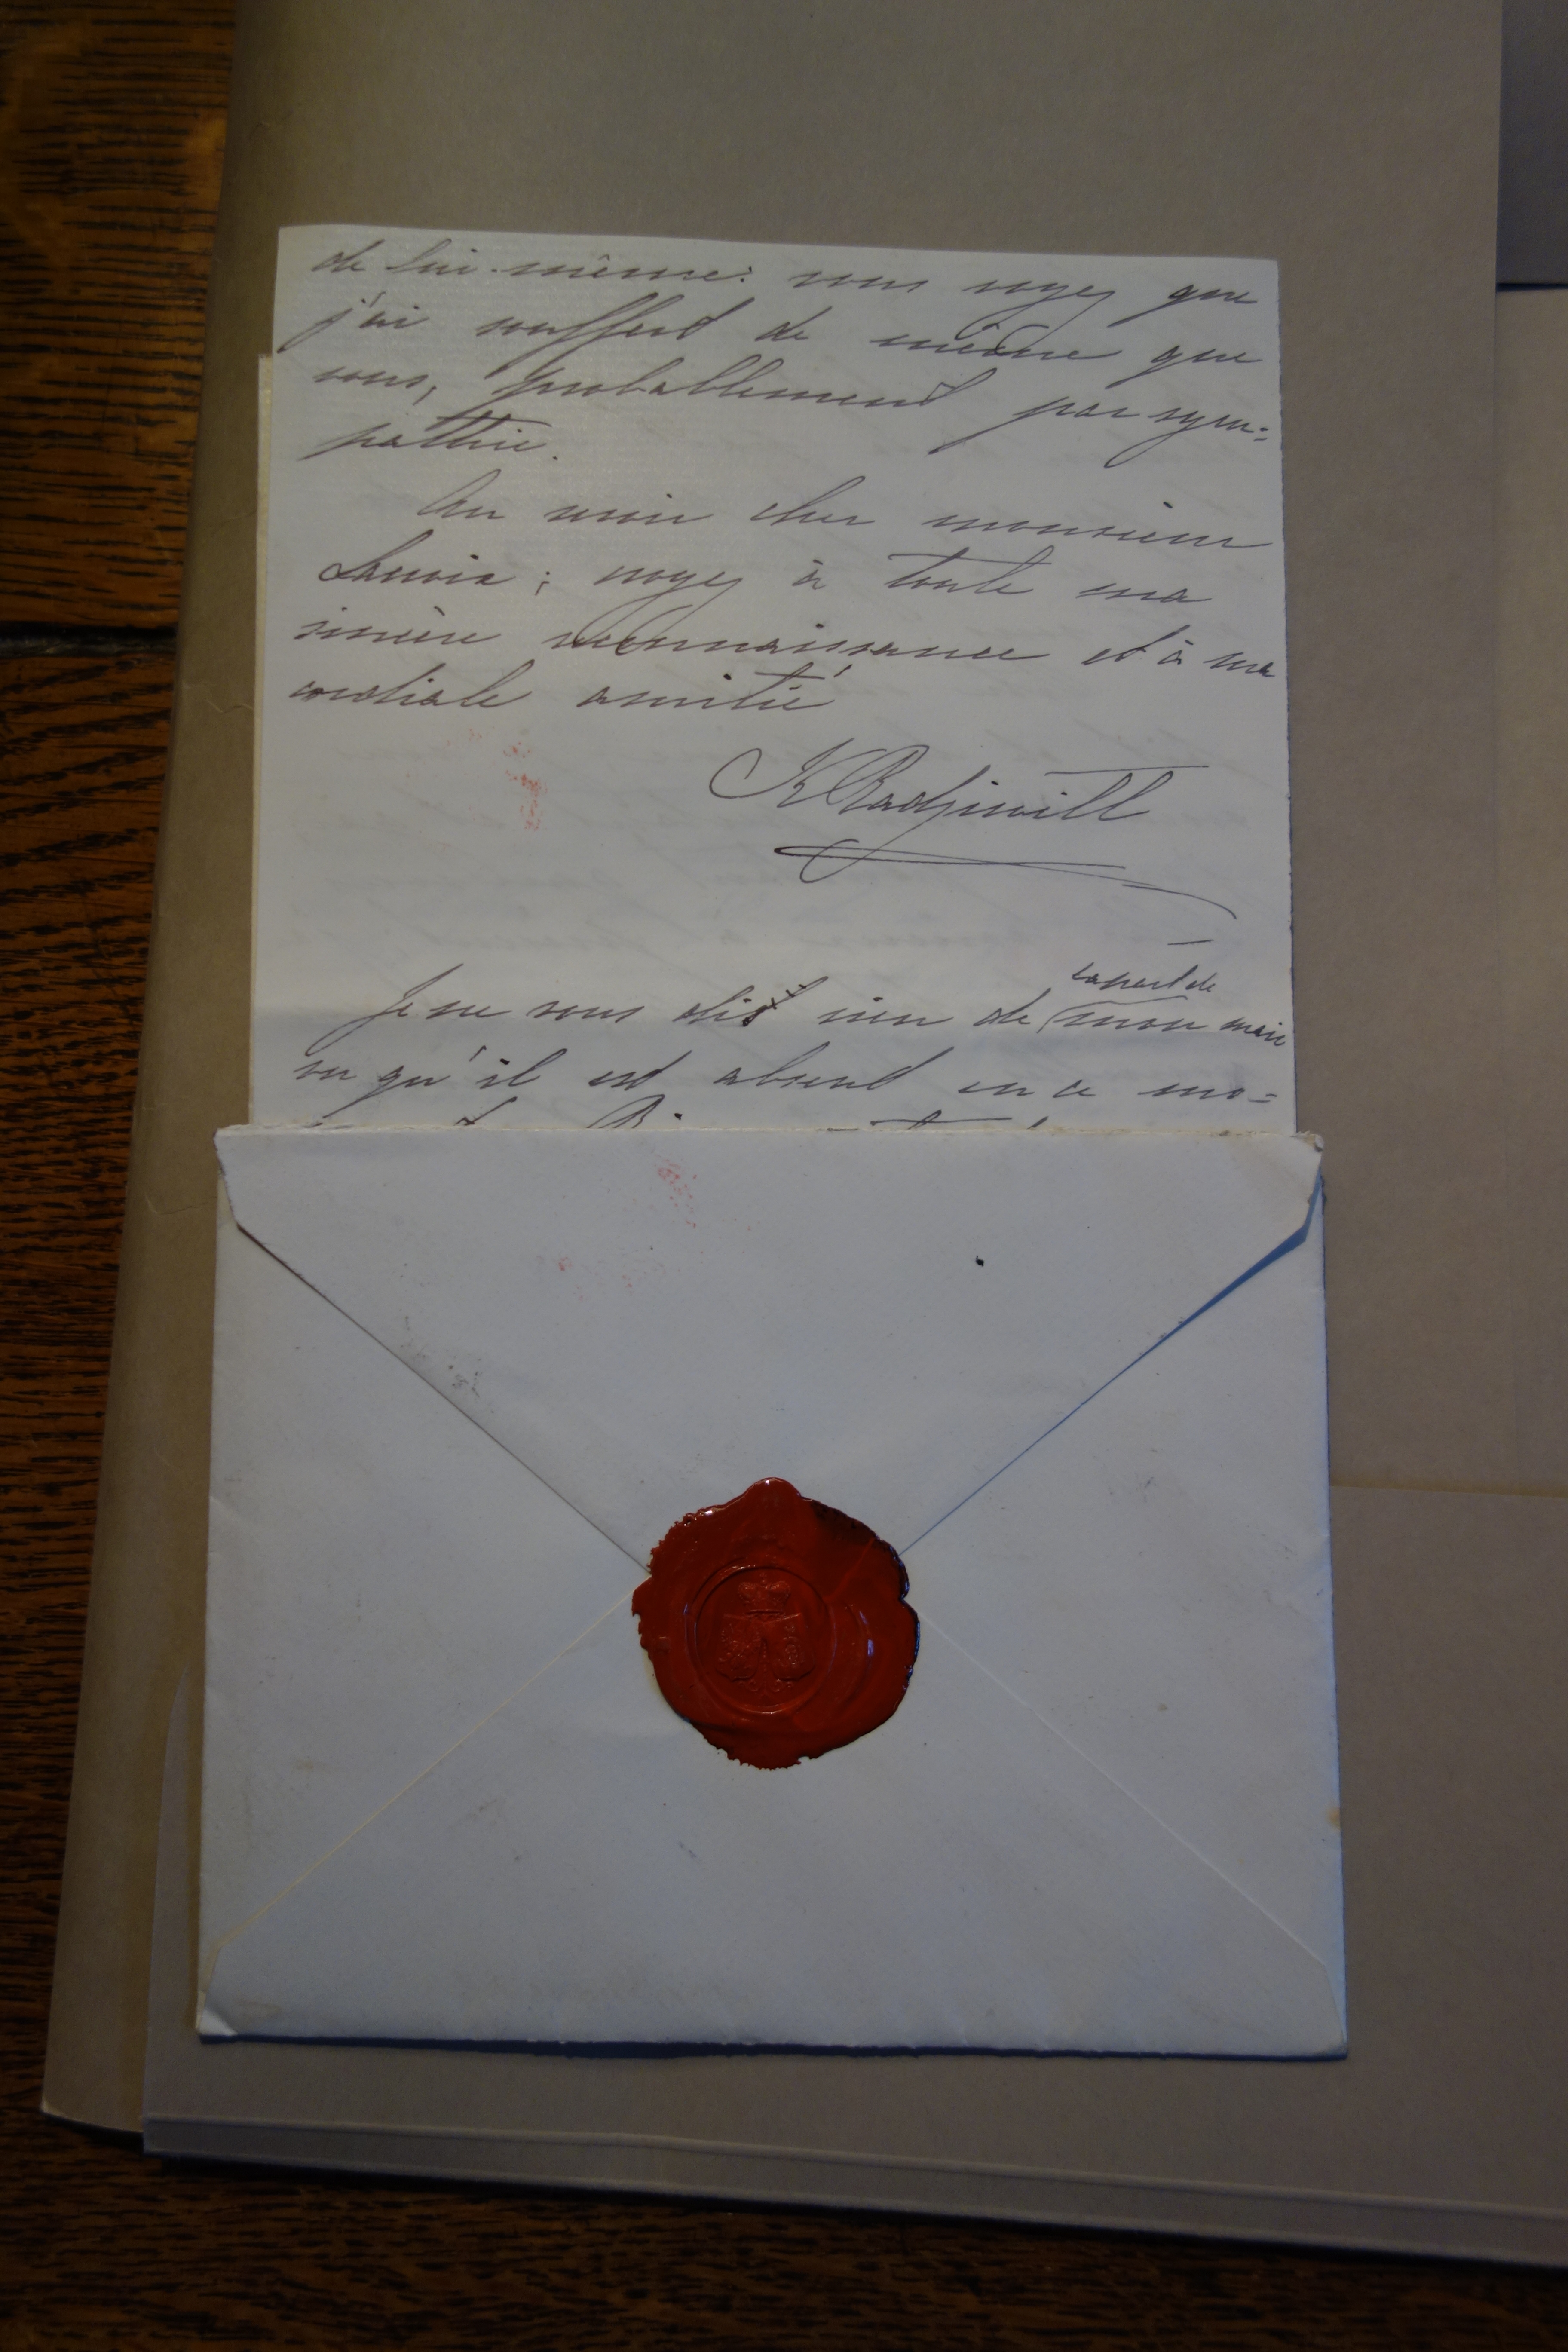 de lui-même: vous voyez que
j'ai souffert de même que
vous, probablement par sym=
pathie.
Au revoir cher monsieur
croyez à toute ma
sincère reconnaissance et à ma
cordiale amitié
K Radziwill
la part de
Je ne vous dis rien de mon mari
vu qu'il est absent en ce mo=